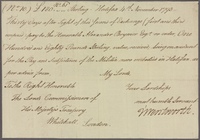 Sterling Halifax 4th November 1793.
Thirty Days after Sight of this Second of Exchange, (first and third
unpaid) pay to the Honorable Alexander Brymer Esqr. or order One
Hundred and Eighty Pounds Sterling value received, being on account
for the Pay and Subsistence of the Militia now embodied in Halifax as
per advice from
My Lords
To the Right Honorable
The Lords Commissioners of
His Majesty's Treasury
Whitehall
London
Your Lordships
most humble Servant
J Wentworth